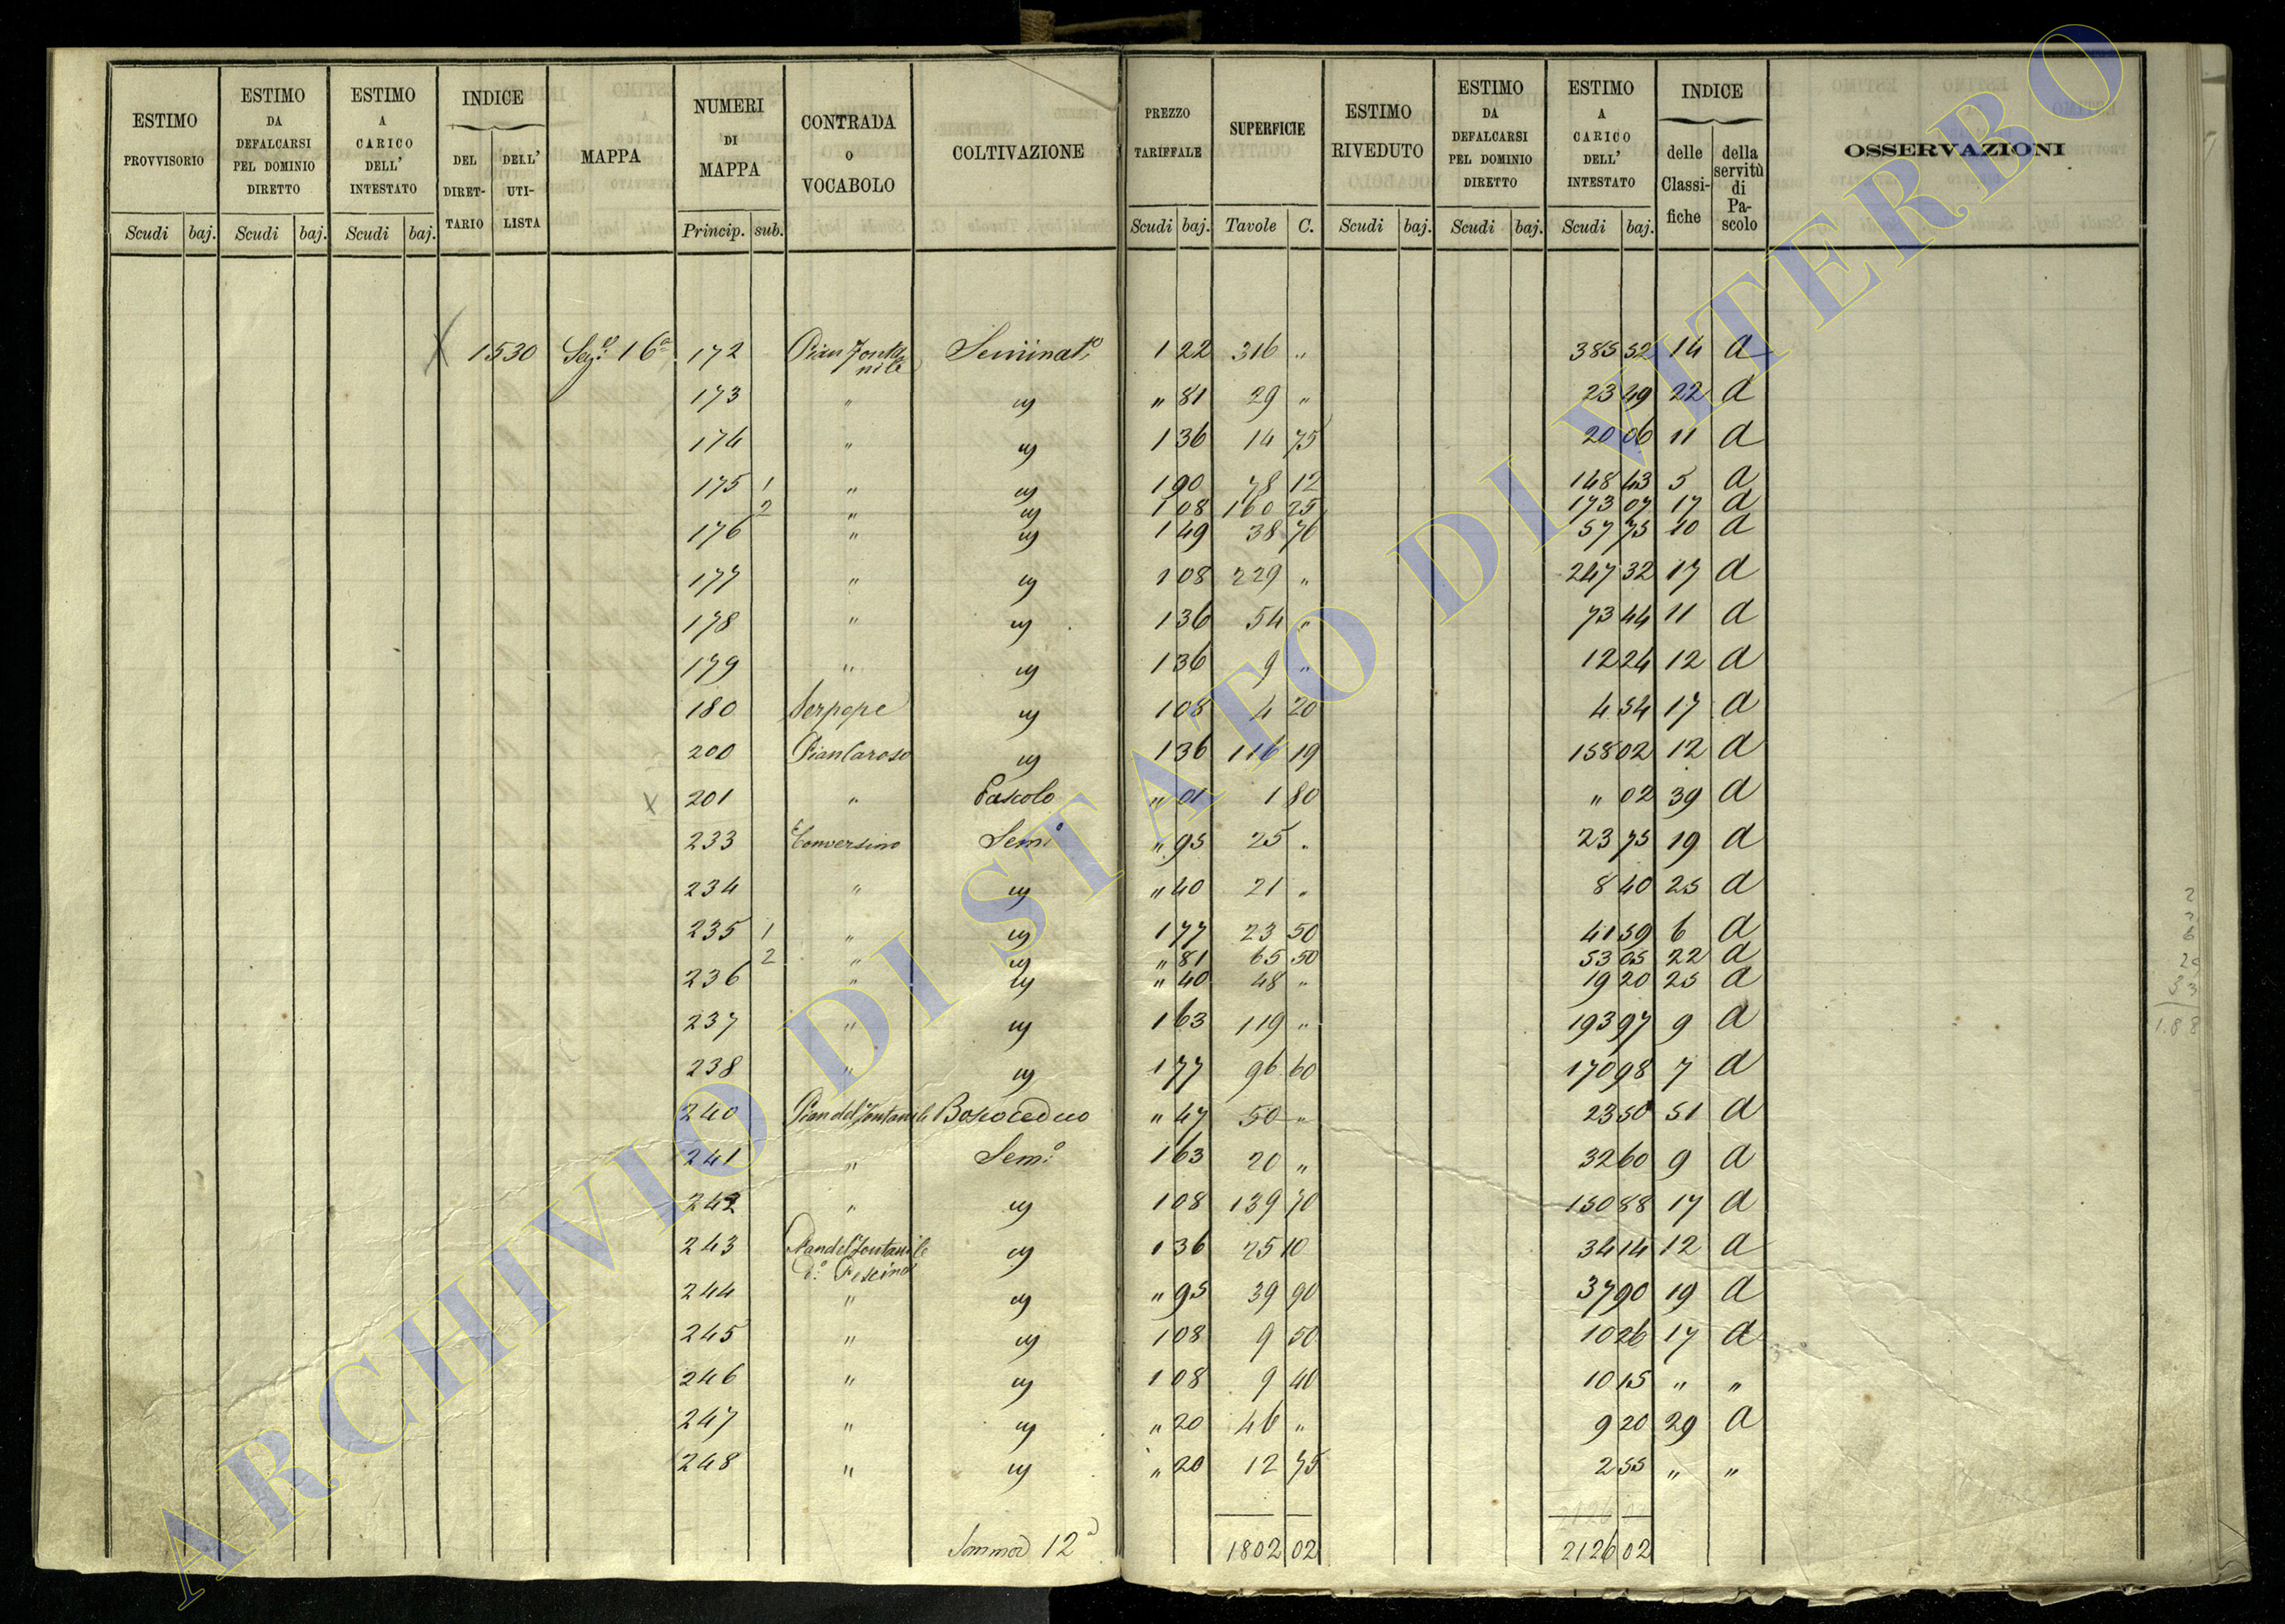 ESTIMO PROVVISORIO Scudi baj.
ESTIMO DA DEFALCARSI PEL DOMINIO DIRETTO Scudi baj.
ESTIMO A CARICO DELL' INTESTATO Scudi baj.
INDICE DEL DIRET- TARIO DELL' UTI- LISTA
MAPPA
NUMERI DI MAPPA Princip. sub.
CONTRADA O VOCABOLO
COLTIVAZIONE
PREZZO TARIFFALE Scudi baj.
SUPERFICIE Tavole C.
ESTIMO RIVEDUTO Scudi baj.
ESTIMO DA DEFALCARSI PEL DOMINIO DIRETTO Scudi baj.
ESTIMO A CARICO DELL' INTESTATO Scudi baj.
INDICE delle Classi- fiche della servitù di Pa- scolo
OSSERVAZIONI
X 1530 Sez.e 16a 172 Pian Fonta nile Seminat.o 1 22 316 " 385 52 14 a
173 " " " 81 29 " 23 49 22 a
174 " " 1 36 14 75 20 06 11 a
175 1 " " 1 90 78 12 148 43 5 a
2 " " 1 08 160 25 173 07 17 a
176 " " 1 49 38 76 57 75 10 a
177 " " 1 08 229 " 247 32 17 a
178 " " 1 36 54 " 73 44 11 a
179 " " 1 36 9 " 12 24 12 a
180 Serpepe " 1 08 4 20 4 54 17 a
200 Pian Caroso " 1 36 116 19 158 02 12 a
X 201 " Pascolo " 01 1 80 " 02 39 a
233 Conversino Sem.o " 95 25 " 23 75 19 a
234 " " " 40 21 " 8 40 25 a
235 1 " " 1 77 23 50 41 59 6 a
2 " " " 81 65 50 53 05 22 a
236 " " " 40 48 " 19 20 25 a
237 " " 1 63 119 " 193 97 9 a
238 " " 1 77 96 60 170 98 7 a
240 Pian del Fontanile Bosco ceduo " 47 50 " 23 50 51 a
241 " Sem.o 1 63 20 " 32 60 9 a
242 " " 1 08 139 70 150 88 17 a
243 Pian del Fontanile d.o Pescino " 1 36 25 10 34 14 12 a
244 " " " 95 39 90 37 90 19 a
245 " " 1 08 9 50 10 26 17 a
246 " " 1 08 9 40 10 15 " "
247 " " " 20 46 " 9 20 29 a
248 " " " 20 12 75 2 55 " "
2126 02
Somma 12a 1802 02 2126 02
1.88
ARCHIVIO DI STATO DI VITERBO